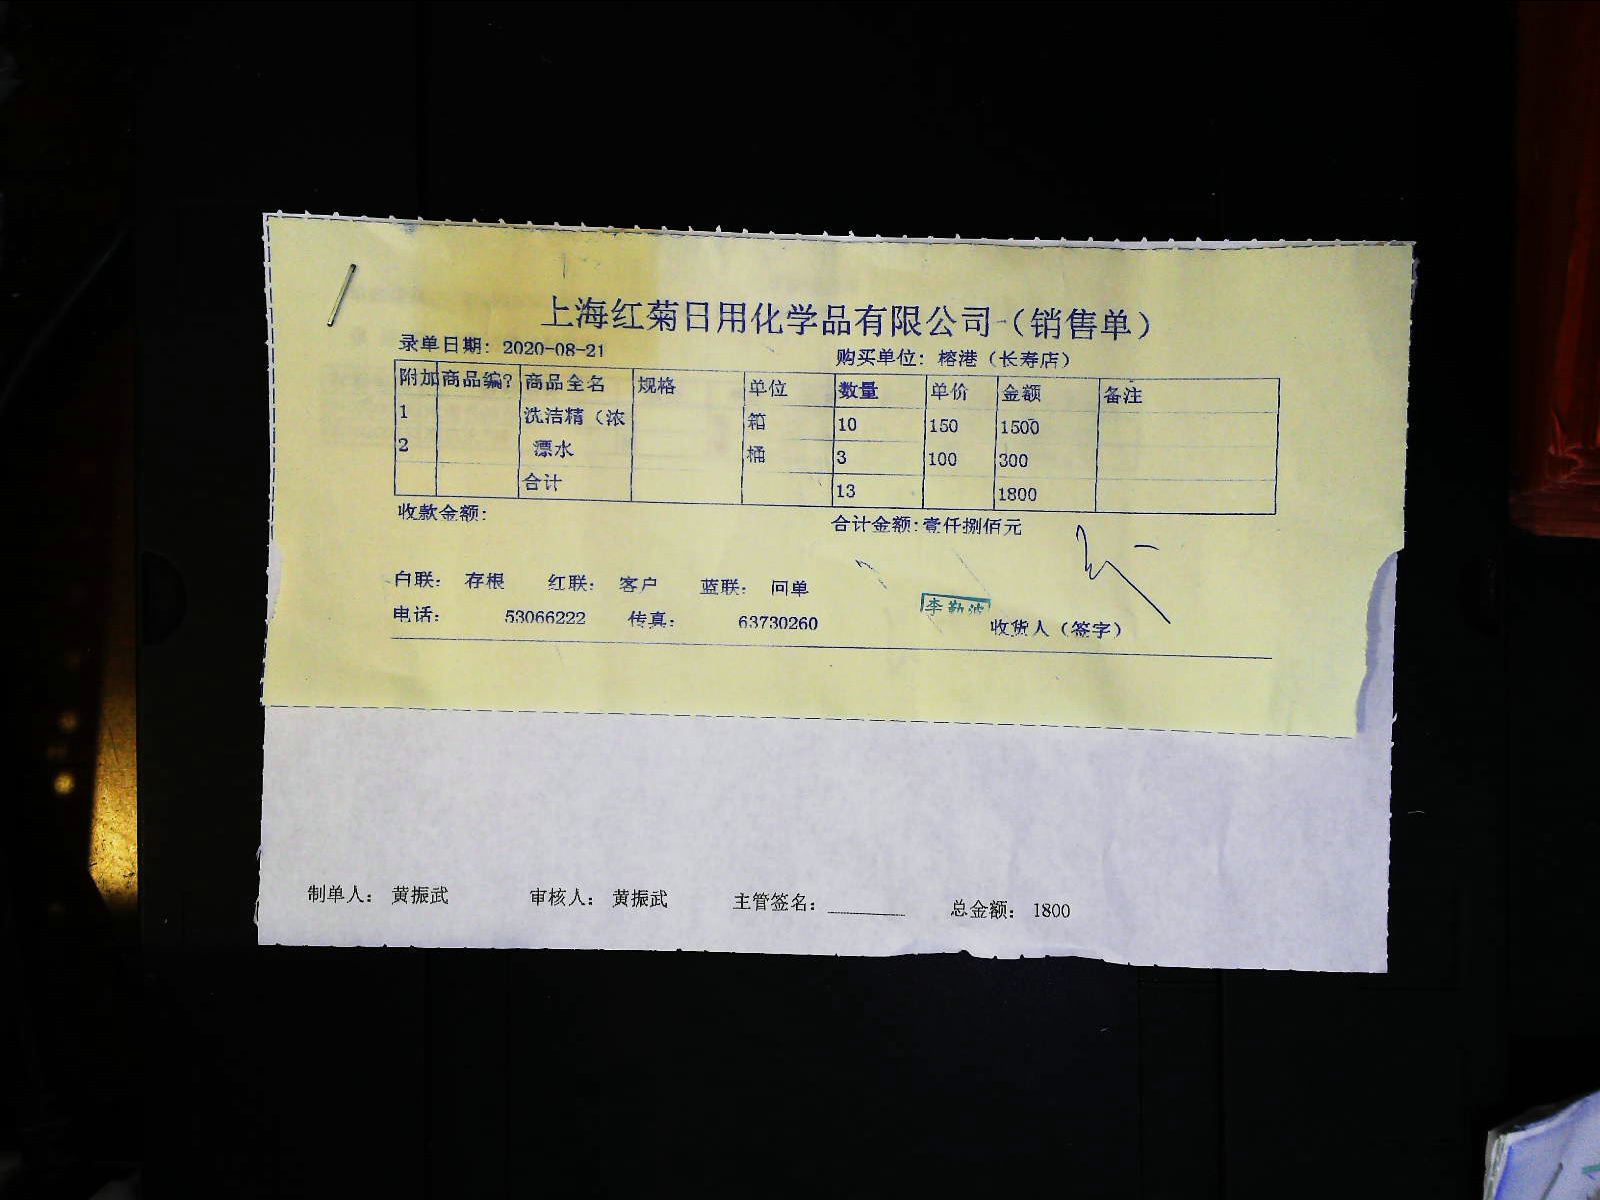 上海红菊日用化学品有限公司-（销售单）
录单日期: 2020-08-21 购买单位: 榕港（长寿店）
附加 商品编? 商品全名 规格 单位 数量 单价 金额 备注
1 洗洁精（浓 箱 10 150 1500
2 漂水 桶 3 100 300
合计 13 1800
收款金额: 合计金额:壹仟捌佰元
白联: 存根 红联: 客户 蓝联: 回单
电话: 53066222 传真: 63730260 李勤波 收货人（签字）
制单人: 黄振武 审核人: 黄振武 主管签名: 总金额: 1800